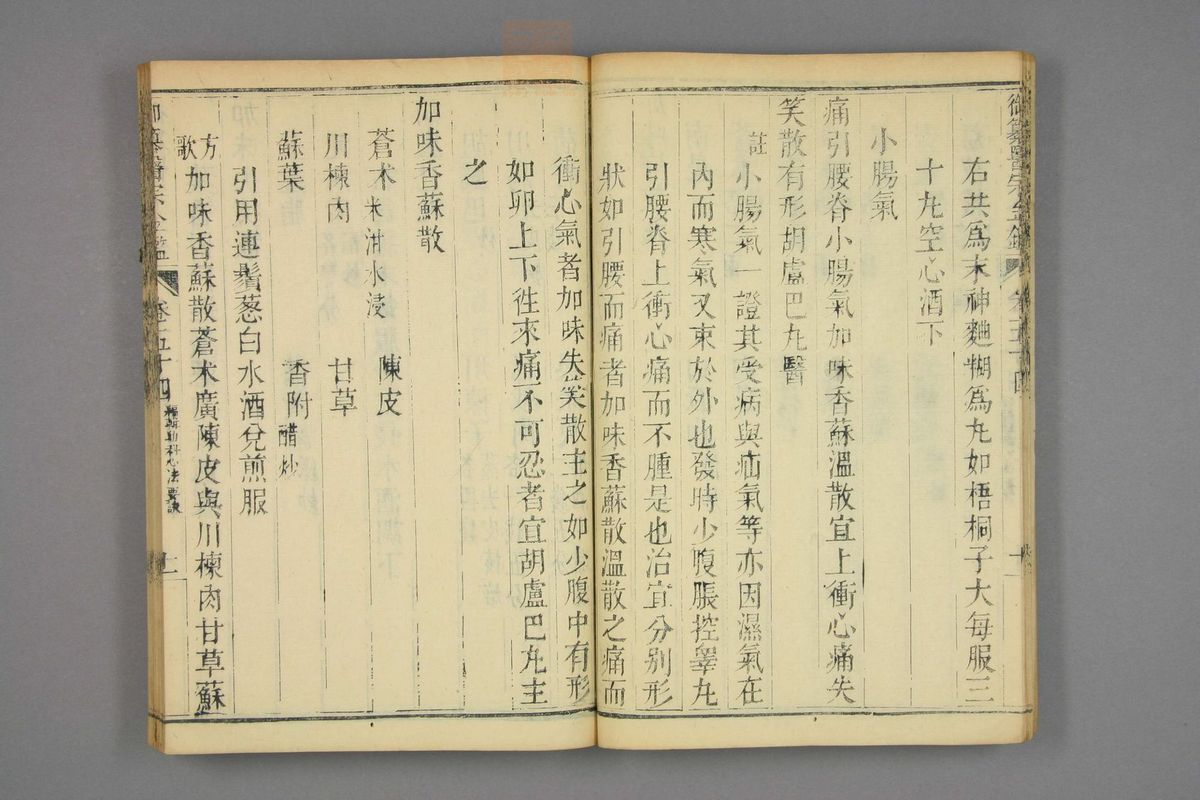 御纂醫宗金鑑 卷五十四
右共爲末神麯糊爲丸如梧桐子大每服三
十丸空心酒下
小腸氣
痛引腰脊小腸氣加味香蘇溫散宜上衝心痛失
笑散有形胡盧巴丸醫
註小腸氣一證其受病與疝氣等亦因濕氣在
內而寒氣又束於外也發時少腹脹控睾丸
引腰脊上衝心痛而不腫是也治宜分別形
狀如引腰而痛者加味香蘇散溫散之痛而
衝心氣者加味失笑散主之如少腹中有形
如卵上下徃來痛不可忍者宜胡盧巴丸主
之
加味香蘇散
蒼术 米泔水浸 陳皮
川楝肉 甘草
蘇葉 香附 醋炒
引用連鬚葱白水酒兌煎服
方歌 加味香蘇散蒼术廣陳皮與川楝肉甘草蘇
御纂醫宗金鑑 卷五十四 編輯幼科心法要訣 十一